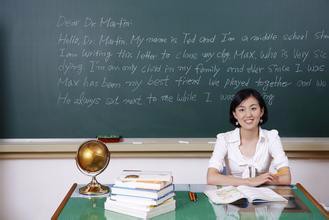 Dear Dr. Martin:
Hello, Dr. Martin. My name is Ted and I'm a middle school stu
I am writing this letter to clone my dog, Max, who is very sic
dying. I'm an only child in my family and ever since I was
Max has been my best friend. We played together and we
He always sat next to me while I was